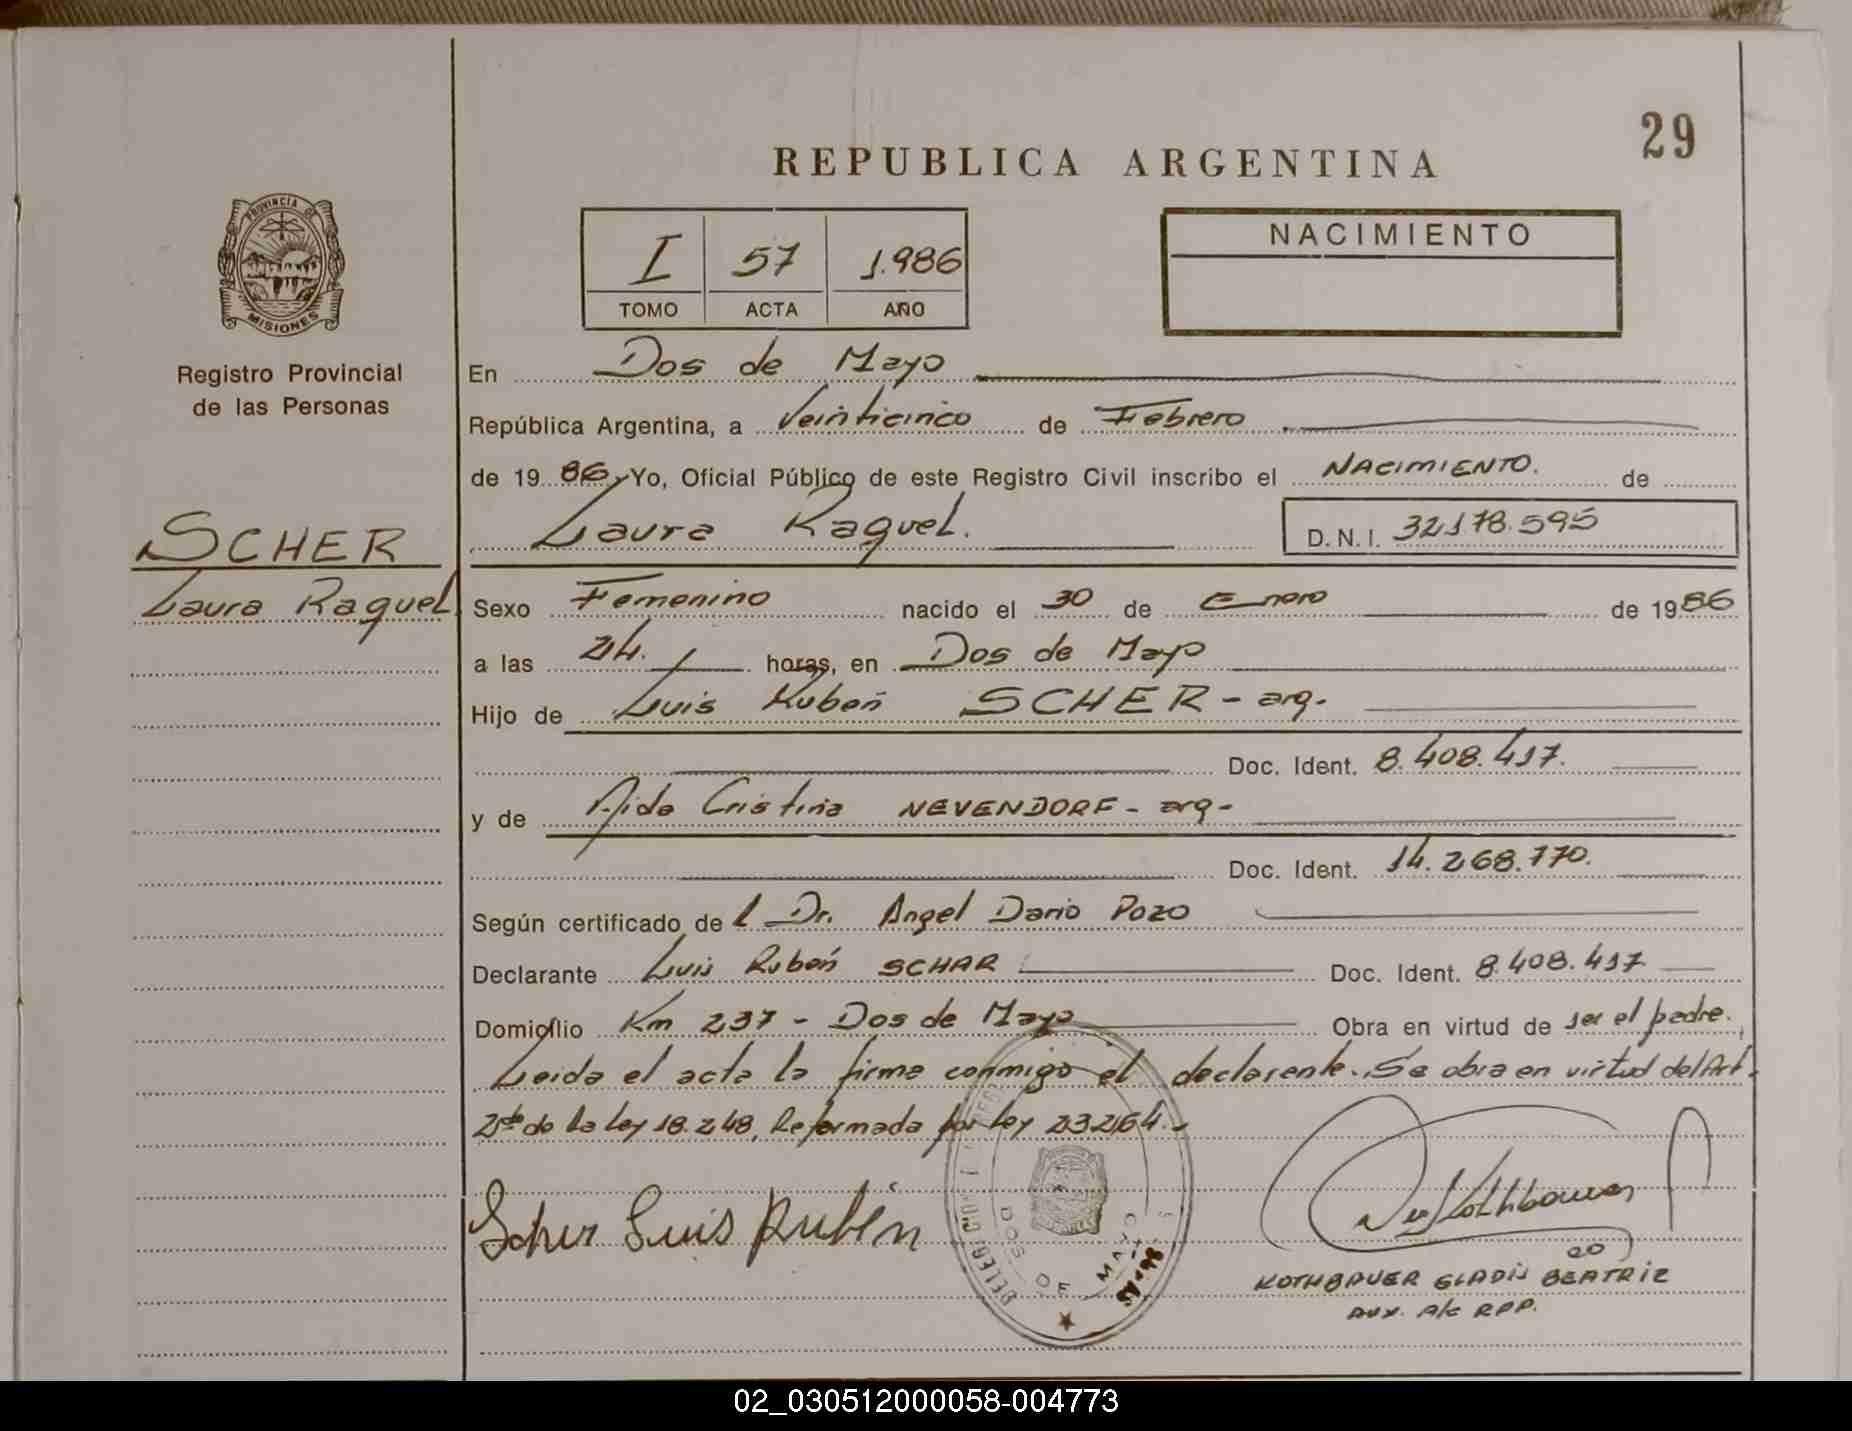 29
REPUBLICA ARGENTINA
PROVINCIA DE
MISIONES
Registro Provincial
de las Personas
I 57 1.986
TOMO ACTA AÑO
NACIMIENTO
En Dos de Mayo
República Argentina, a Veinticinco de Febrero
de 1986 Yo, Oficial Público de este Registro Civil inscribo el NACIMIENTO. de
Laura Raquel. D.N.I. 32178.595
SCHER
Laura Raquel
Sexo Femenino nacido el 30 de Enero de 1986
a las horas, en Dos de Mayo
Hijo de Luis Rubén SCHER - arg.
Doc. Ident. 8.408.417.
y de Aida Cristina NEVENDORF - arg -
Doc. Ident. 14.268.770.
Según certificado de l Dr. Angel Dario Pozo
Declarante Luis Rubén SCHAR Doc. Ident. 8.408.417
Domicilio Km 237 - Dos de Mayo Obra en virtud de ser el padre.
Leida el acta la firma conmigo el declarante. Se obra en virtud del Art.
de la Ley 18.248, Reformada por Ley 23264.-
Scher Luis Rubén
DOS DE MAYO
KOTHBAUER GLADIS BEATRIZ
AUX. A/c RPP.
02_030512000058-004773